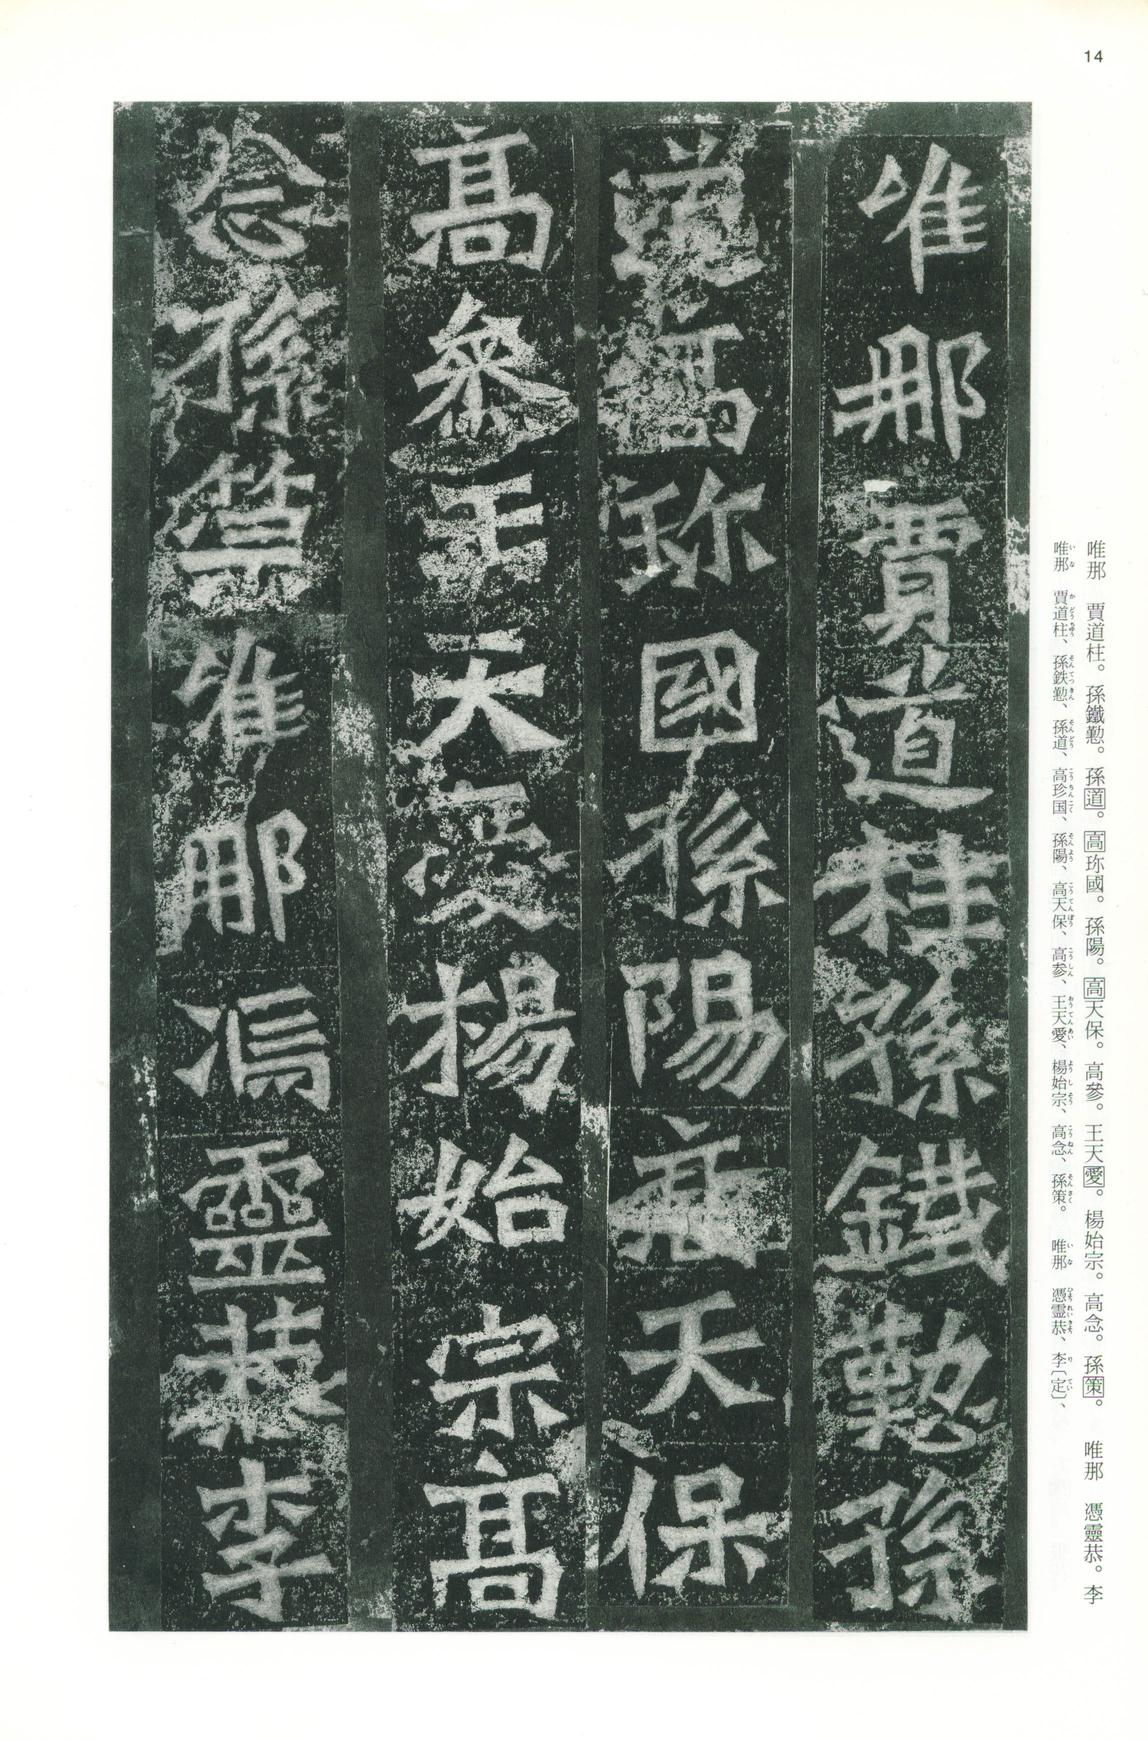 14
唯那　賈道柱。孫鐵懃。孫道。高珎國。孫陽。高天保。高參。王天愛。楊始宗。高念。孫策。　唯那　憑靈恭。李
唯那　賈道柱、孫鉄懃、孫道、高珍国、孫陽、高天保、高参、王天愛、楊始宗、高念、孫策。　唯那　憑霊恭、李〔定〕、
唯那賈道柱孫鐵懃孫
道高珎國孫陽高天保
高參王天愛楊始宗高
念孫策唯那馮靈恭李